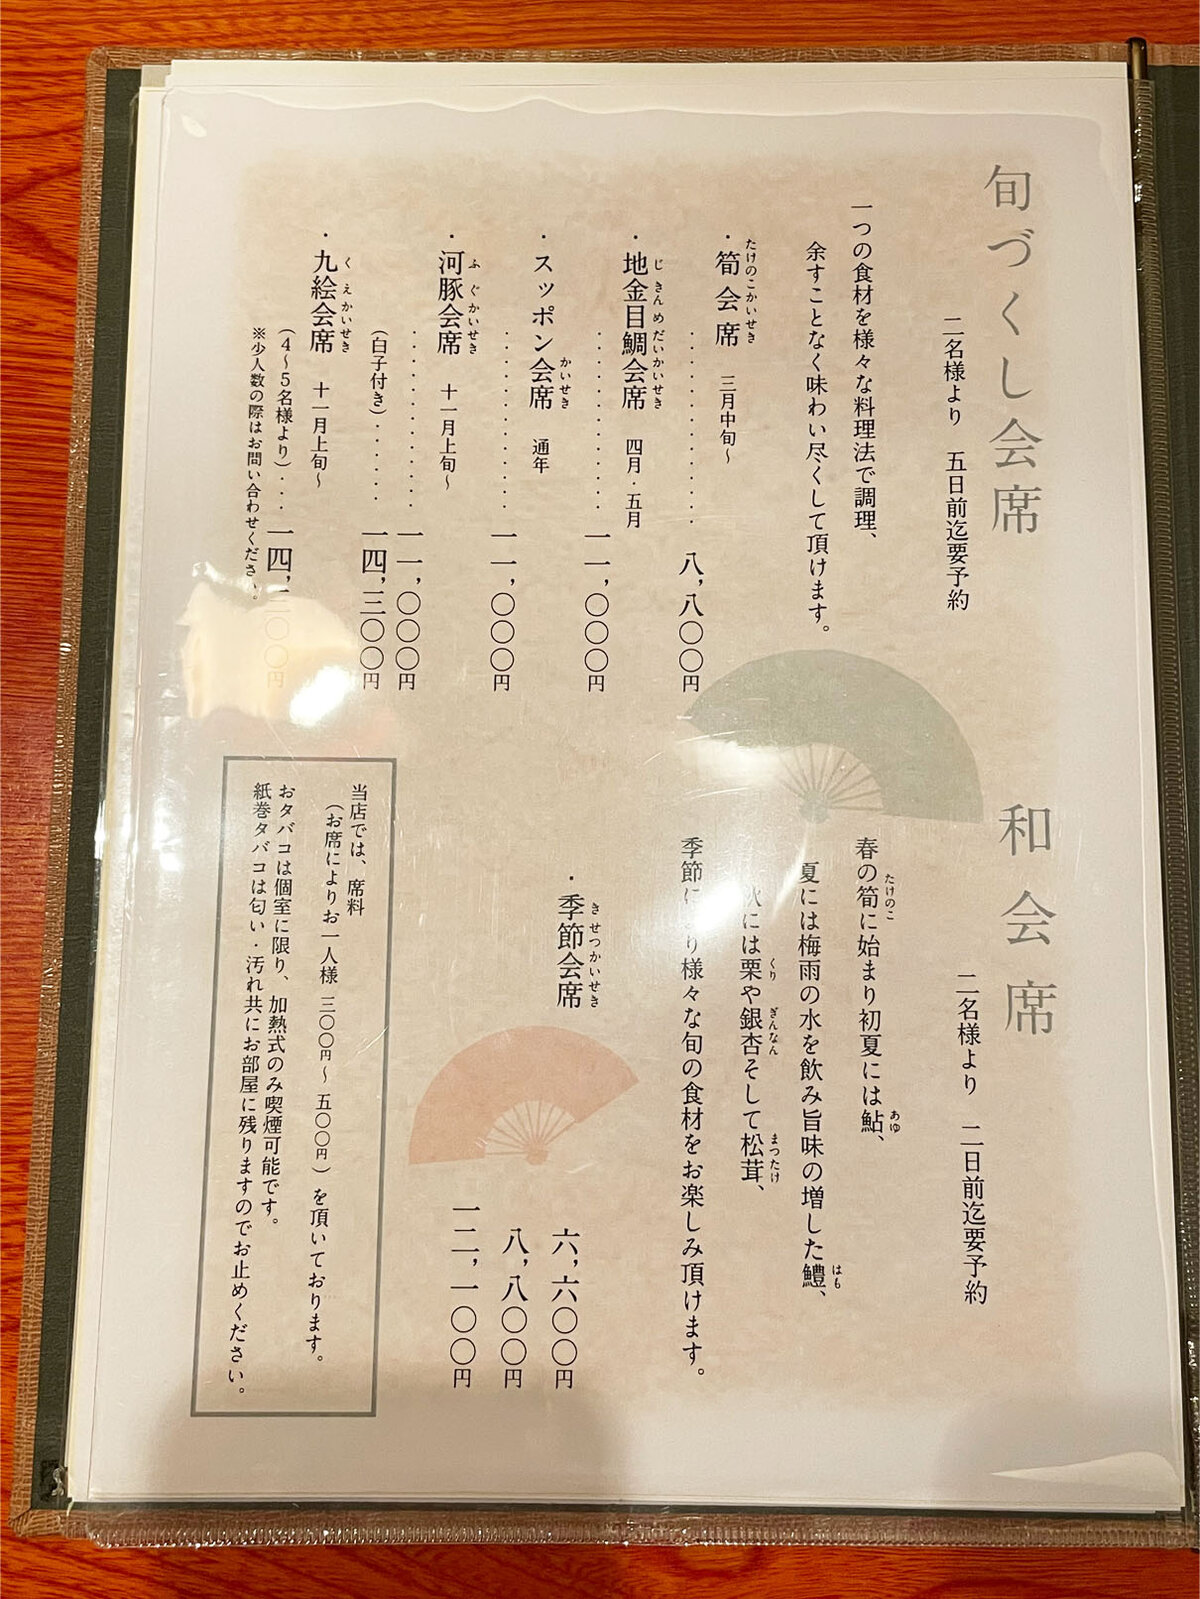 旬づくし会席
二名様より　五日前迄要予約
一つの食材を様々な料理法で調理、
余すことなく味わい尽くして頂けます。
・筍会席　三月中旬～
たけのこかいせき
八,八〇〇円
・地金目鯛会席　四月・五月
じきんめだいかいせき
一一,〇〇〇円
・スッポン会席　通年
かいせき
一一,〇〇〇円
・河豚会席　十一月上旬～
ふぐかいせき
一一,〇〇〇円
(白子付き)一四,三〇〇円
・九絵会席　十一月上旬～
くえかいせき
(4～5名様より)一四,三〇〇円
※少人数の際はお問い合わせください。
和会席
二名様より　二日前迄要予約
春の筍に始まり初夏には鮎、
たけのこ
あゆ
夏には梅雨の水を飲み旨味の増した鱧、
はも
秋には栗や銀杏そして松茸、
くり
ぎんなん
まつたけ
季節に　り様々な旬の食材をお楽しみ頂けます。
・季節会席
きせつかいせき
六,六〇〇円
八,八〇〇円
一二,一〇〇円
当店では、席料
(お席によりお一人様 三〇〇円～ 五〇〇円)を頂いております。
おタバコは個室に限り、加熱式のみ喫煙可能です。
紙巻タバコは匂い・汚れ共にお部屋に残りますのでお止めください。